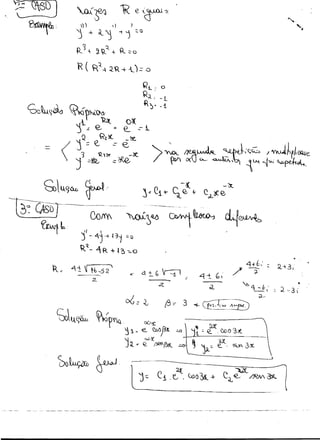 2º CASO raízes R e iguais
Exemplo: y''' + 2y'' + y' = 0
R³ + 2R² + R = 0
R(R² + 2R + 1) = 0
R₁ = 0
R₂ = -1
R₃ = -1
Soluções Próprias
y¹ = e^R₁x = e^0x = 1
y² = e^R₂x = e^-x
y³ = xe^R₁x = xe^-x
na segunda repetição, multiplica-se
por x a anterior que foi repetida.
Solução geral: y = C₁ + C₂e^-x + C₃xe^-x
3º CASO
com raízes complexas diferentes
Exemplo
y'' - 4y' + 13y = 0
R² - 4R + 13 = 0
R = 4 ± √16-52 / 2 = 4 ± 6√-1 / 2 = 4 ± 6i / 2
4+6i / 2 = 2+3i
4-6i / 2 = 2-3i
α = 2 β = 3 → (positivo sempre)
Solução Própria
y₁ = e^αx cos βx ⇒ y₁ = e^2x cos 3x
y₂ = e^αx sen βx ⇒ y₂ = e^2x sen 3x
Solução Geral
y = C₁ e^2x . cos 3x + C₂ e^2x sen 3x